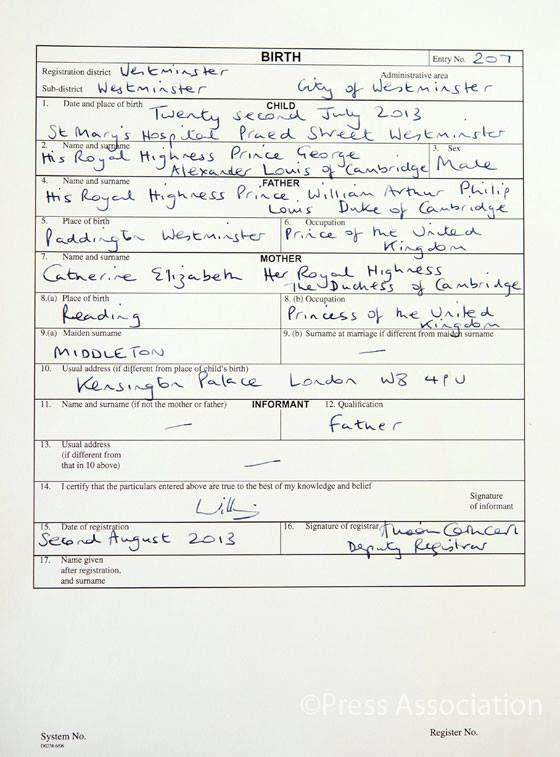 BIRTH
Entry No. 207
Registration district Westminster
Administrative area
Sub-district Westminster
City of Westminster
1. Date and place of birth
CHILD
Twenty second July 2013
St Mary's Hospital Praed Street Westminster
2. Name and surname
His Royal Highness Prince George
Alexander Louis of Cambridge
3. Sex
Male
4. Name and surname
FATHER
His Royal Highness Prince William Arthur Philip
Louis Duke of Cambridge
5. Place of birth
Paddington Westminster
6. Occupation
Prince of the United
Kingdom
7. Name and surname
MOTHER
Catherine Elizabeth Her Royal Highness
The Duchess of Cambridge
8.(a) Place of birth
Reading
8. (b) Occupation
Princess of the United
Kingdom
9.(a) Maiden surname
MIDDLETON
9. (b) Surname at marriage if different from maiden surname
—
10. Usual address (if different from place of child's birth)
Kensington Palace London W8 4PU
11. Name and surname (if not the mother or father)
INFORMANT
—
12. Qualification
Father
13. Usual address
(if different from
that in 10 above)
—
14. I certify that the particulars entered above are true to the best of my knowledge and belief
Signature
of informant
15. Date of registration
Second August 2013
16. Signature of registrar
Deputy Registrar
17. Name given
after registration,
and surname
©Press Association
System No.
Register No.